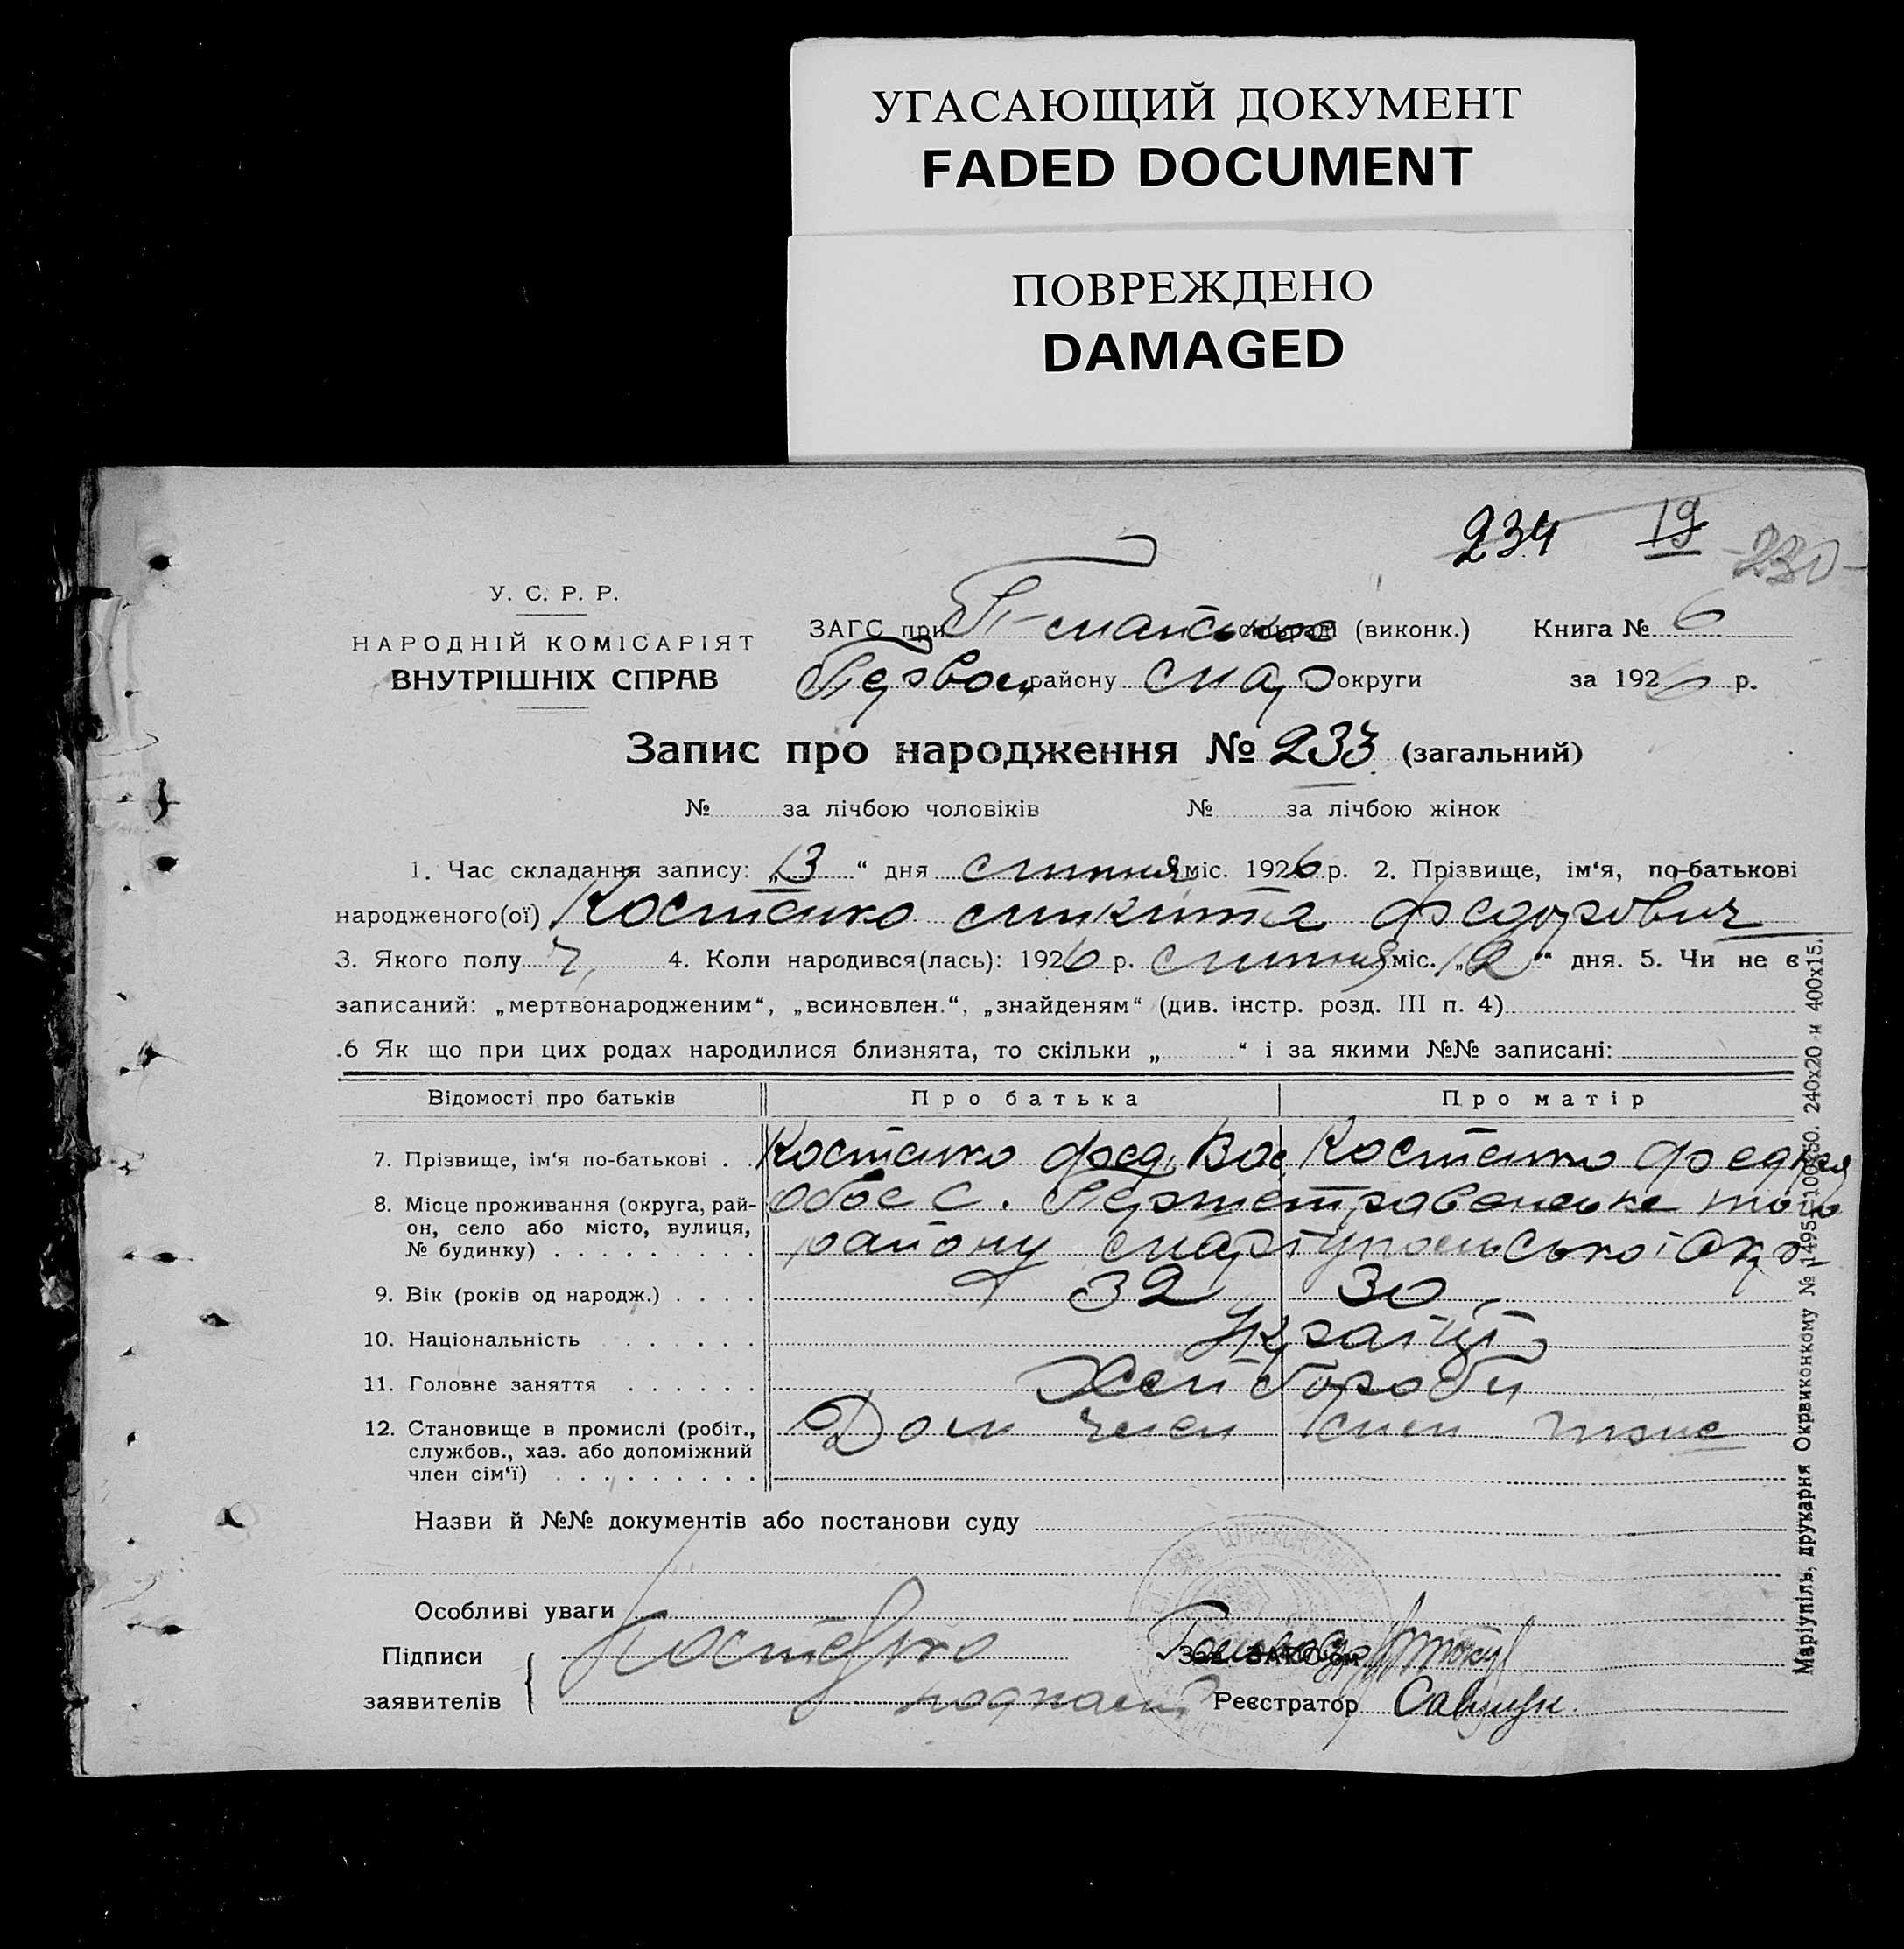 УГАСАЮЩИЙ ДОКУМЕНТ
FADED DOCUMENT
ПОВРЕЖДЕНО
DAMAGED
234 19 230
У. С. Р. Р.
НАРОДНІЙ КОМІСАРІЯТ
ВНУТРІШНІХ СПРАВ
ЗАГС при (виконк.) Книга № 6
району округи за 1926 р.
Запис про народження № 233 (загальний)
№ за лічбою чоловіків № за лічбою жінок
1. Час складання запису: „13“ дня липня міс. 1926 р. 2. Прізвище, ім'я, по-батькові
народженого(ої) Костенко Микита Федорович
3. Якого полу ч 4. Коли народився(лась): 1926 р. липня міс. „12“ дня. 5. Чи не є
записаний: „мертвонародженим“, „всиновлен.“, „знайденям“ (див. інстр. розд. III п. 4)
.6 Як що при цих родах народилися близнята, то скільки „ “ і за якими №№ записані:
Відомості про батьків Про батька Про матір
7. Прізвище, ім'я по-батькові Костенко Фед. Вас Костенко
8. Місце проживання (округа, рай-
он, село або місто, вулиця,
№ будинку)
обоє с. того
району Маріупольської Окр
9. Вік (років од народж.) 32 30
10. Національність Україці
11. Головне заняття Хлібороби
12. Становище в промислі (робіт.,
службов., хаз. або допоміжний
член сім'ї)
Дом член
Назви й №№ документів або постанови суду
Особливі уваги
Підписи
заявителів
Костенко
Зав. ЗАГС'ом
Реєстратор
Маріупіль, друкарня Окрвиконкому № 1495—100×50. 240х20 и 400х15.